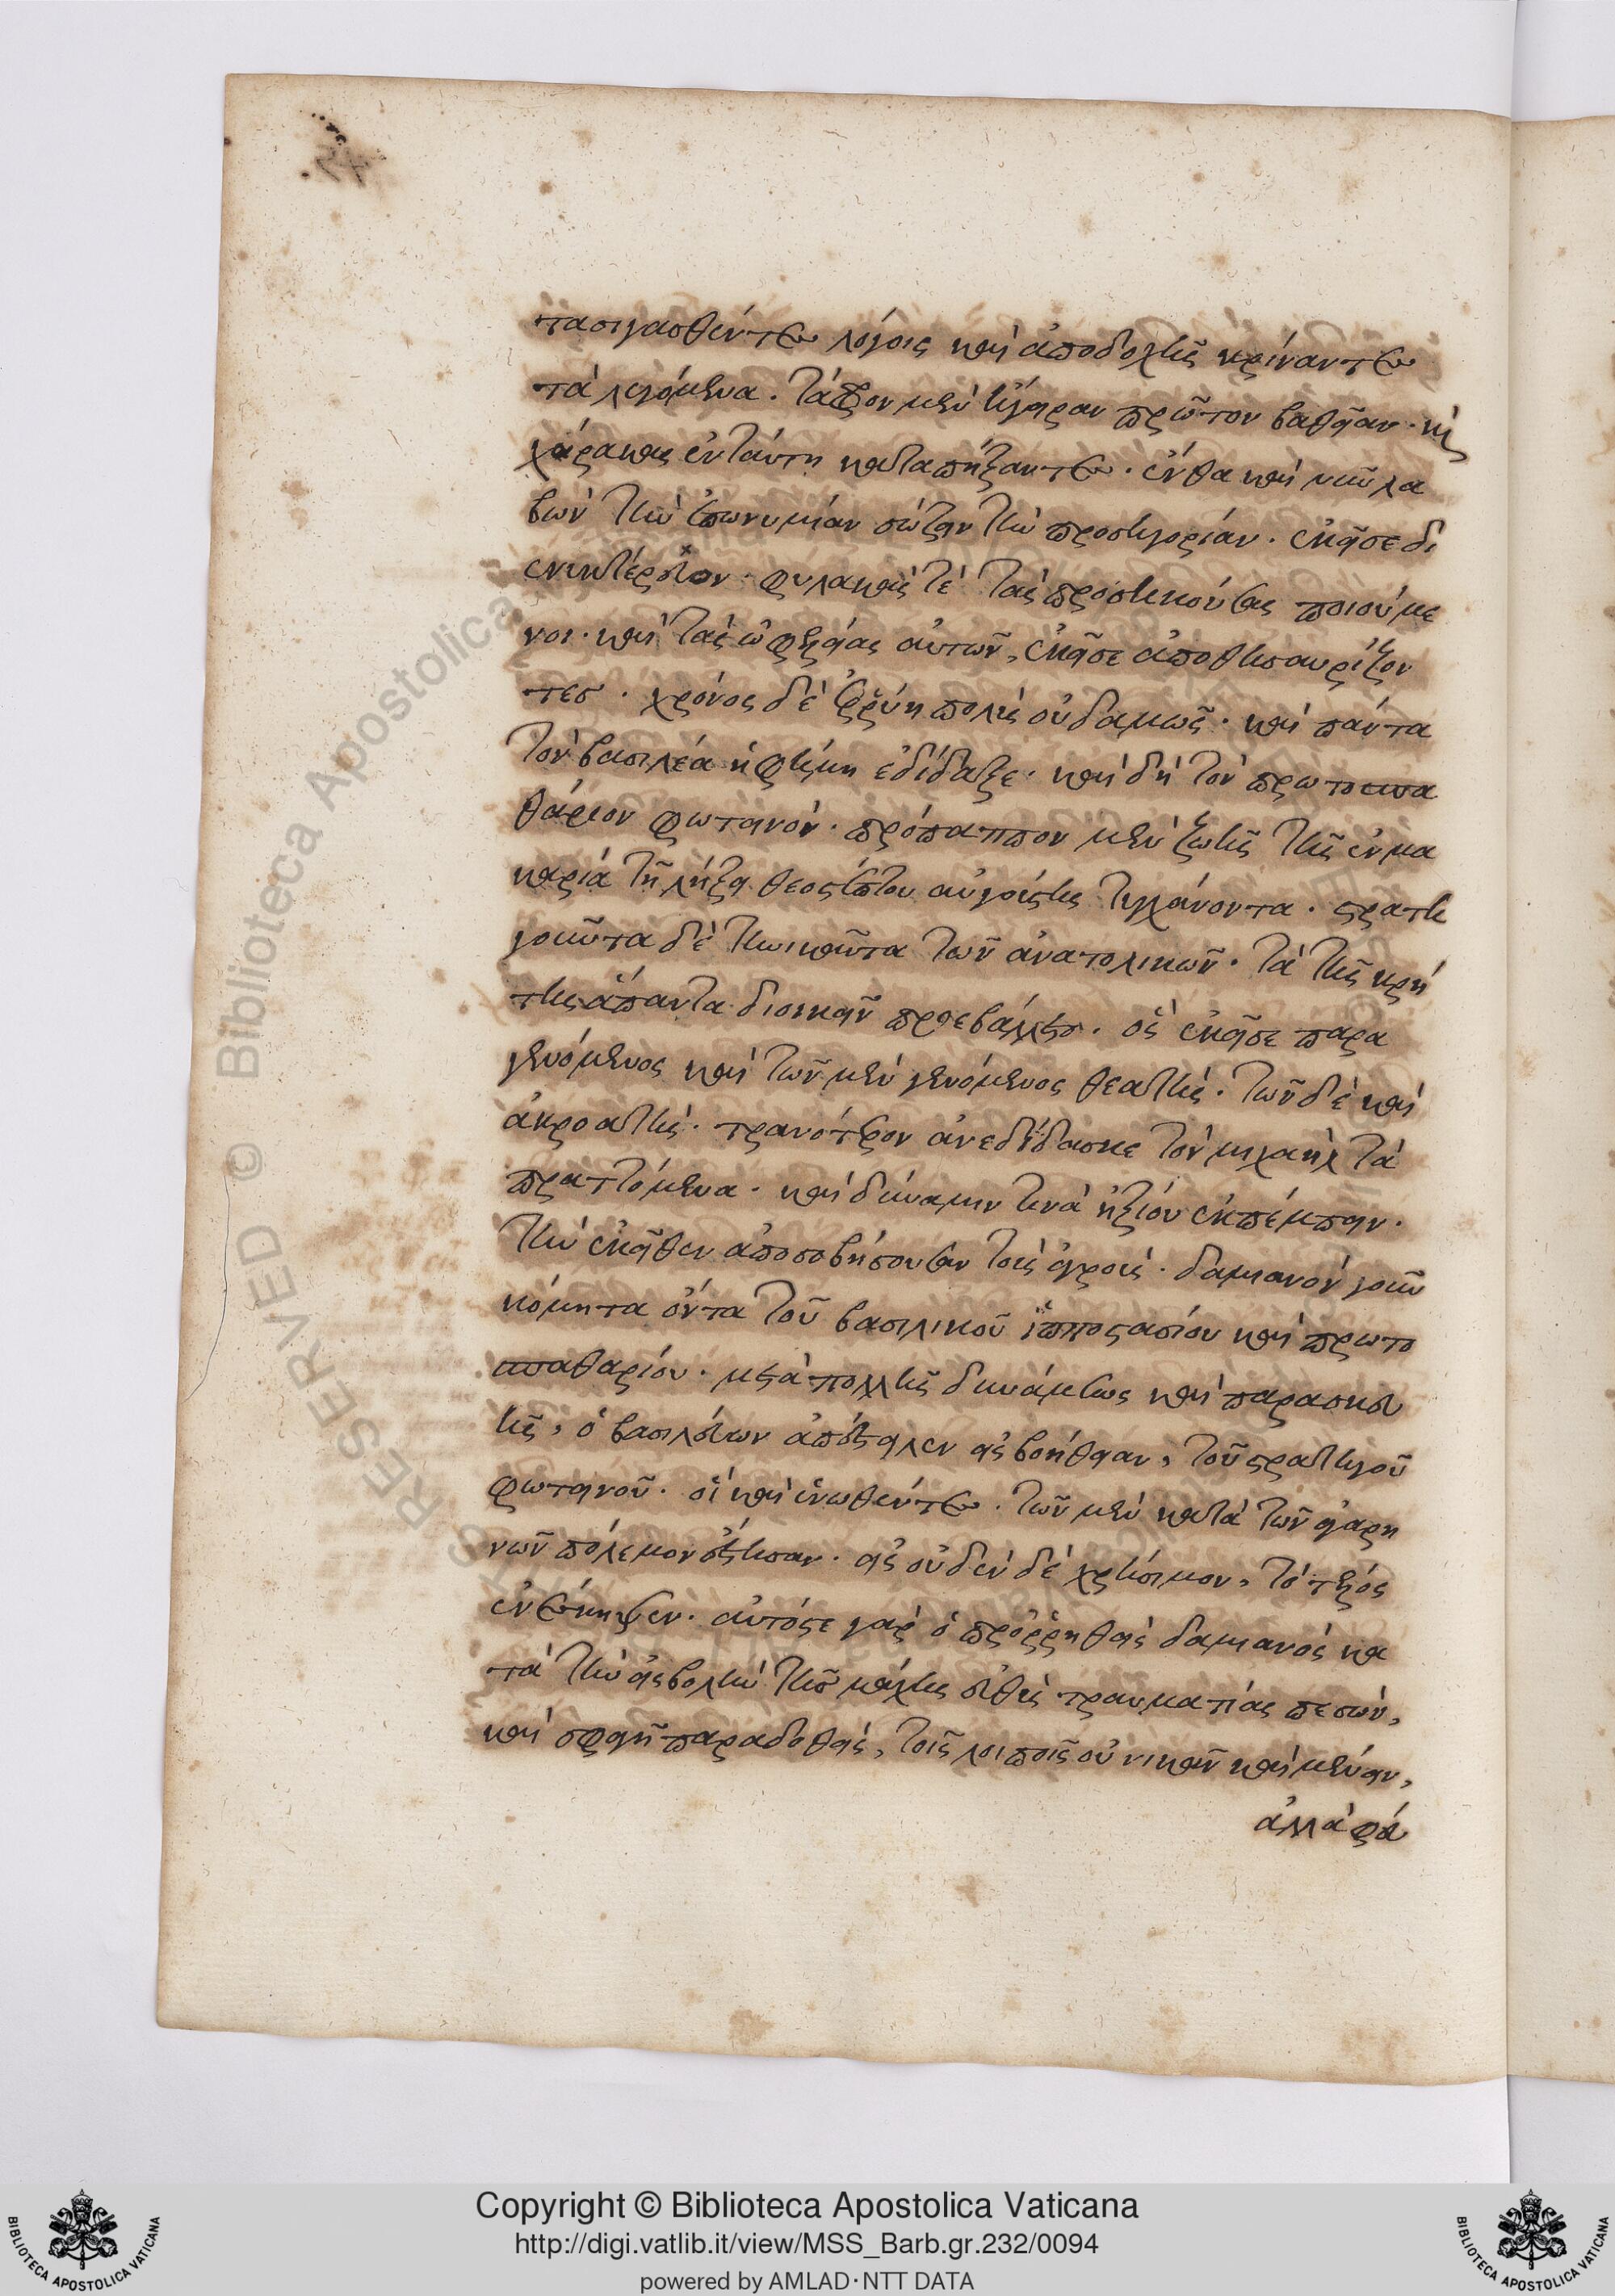 πασιγασθέντες λόγοις καὶ ἀποδοχῆς κρίναντες
τὰ λεγόμενα. τάφρον μὲν ἤγειραν πρῶτον βαθεῖαν. καὶ
χάρακας ἐν ταύτη καταπήξαντες. ἔνθα καὶ νῦν λα
βὼν τὴν ἐπωνυμίαν σώζειν τὴν προσηγορίαν. ἐκεῖσε δι
ενυκτέρευον. φυλακὰς τὲ τὰς προσηκούσας ποιούμε
νοι. καὶ τὰς ὠφελείας αὐτῶν, ἐκεῖσε ἀποθησαυρίζον
τες. χρόνος δὲ ἐρρύη πολὺς οὐδαμῶς. καὶ πάντα
τὸν βασιλέα ἡ φήμη ἐδίδαξε. καὶ δὴ τὸν πρωτοσπα
θάριον φωτεινὸν. πρόπαππον μὲν ζωῆς τῆς ἐν μα
καρία τῇ λήξει θεοστέπτου αὐγούστης τυγχάνοντα. στρατη
γοῦντα δὲ τηνικαῦτα τῶν ἀνατολικῶν. τὰ τῆς κρή
της ἅπαντα διοικεῖν προεβάλλετο. ὃς ἐκεῖσε παρα
γενόμενος καὶ τῶν μὲν γενόμενος θεατὴς. τῶν δὲ καὶ
ἀκροατὴς. τρανότερον ἀνεδίδασκε τὸν μιχαὴλ τὰ
πραττόμενα. καὶ δύναμιν τινὰ ἠξίου ἐκπέμπειν.
τὴν ἐκεῖθεν ἀποσοβήσουσαν τοὺς ἐχθροὺς. δαμιανὸν γοῦν
κόμητα ὄντα τοῦ βασιλικοῦ ἱπποστασίου καὶ πρωτο
σπαθαρίου. μετὰ πολλῆς δυνάμεως καὶ παρασκευ
ῆς, ὁ βασιλεύων ἀπέστειλεν εἰς βοήθειαν, τοῦ στρατηγοῦ
φωτεινοῦ. οἳ καὶ ἑνωθέντες. τῶν μὲν κατὰ τῶν ἀγαρη
νῶν πόλεμον ἔστησαν. εἰς οὐδὲν δὲ χρήσιμον, τὸ τέλος
ἐνέσκηψεν. αὐτόσε γὰρ ὁ προρρηθεὶς δαμιανὸς κα
τὰ τὴν εἰσβολὴν τῆς μάχης εὐθὺς τραυματίας πεσὼν,
καὶ σφαγῇ παραδοθεὶς, τοῖς λοιποῖς οὐ νικᾶν καὶ μένειν,
ἀλλὰ φέ